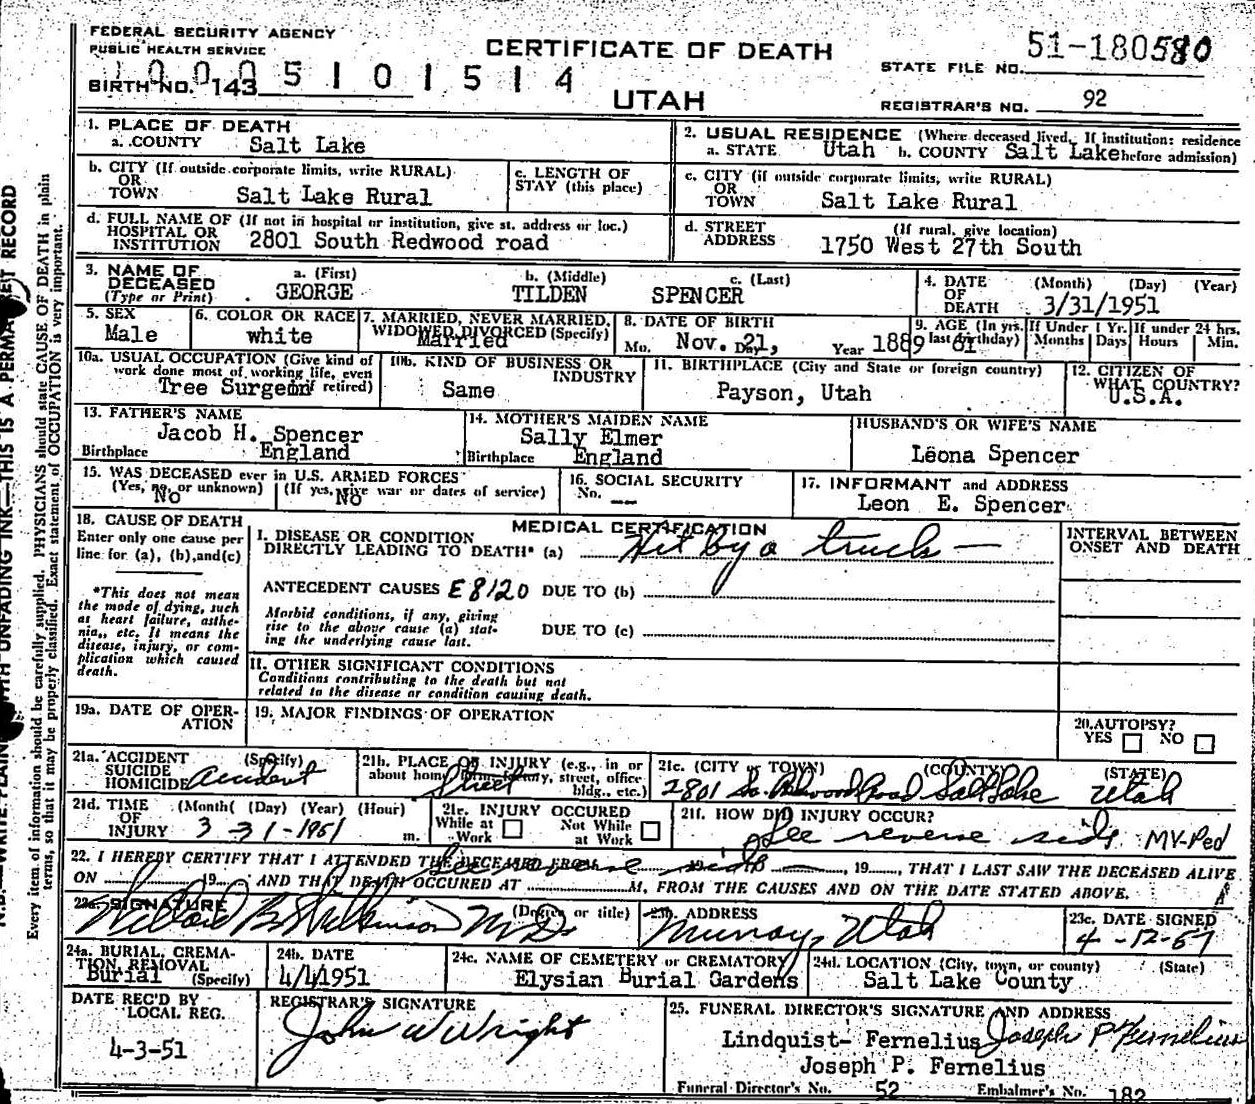 FEDERAL SECURITY AGENCY
PUBLIC HEALTH SERVICE
CERTIFICATE OF DEATH
UTAH
51-180580
STATE FILE NO.
BIRTH NO. 143
0 0 0 5 1 0 1 5 1 4
REGISTRAR'S NO. 92
1. PLACE OF DEATH
a. COUNTY Salt Lake
2. USUAL RESIDENCE (Where deceased lived. If institution: residence before admission)
a. STATE Utah b. COUNTY Salt Lake
b. CITY (If outside corporate limits, write RURAL) OR TOWN Salt Lake Rural
c. LENGTH OF STAY (this place)
c. CITY (if outside corporate limits, write RURAL) OR TOWN Salt Lake Rural
d. FULL NAME OF (If not in hospital or institution, give st. address or loc.) HOSPITAL OR INSTITUTION 2801 South Redwood road
d. STREET ADDRESS (If rural, give location) 1750 West 27th South
3. NAME OF DECEASED (Type or Print)
a. (First) GEORGE
b. (Middle) TILDEN
c. (Last) SPENCER
4. DATE OF DEATH (Month) (Day) (Year) 3/31/1951
5. SEX Male
6. COLOR OR RACE white
7. MARRIED, NEVER MARRIED, WIDOWED, DIVORCED (Specify) Married
8. DATE OF BIRTH Mo. Nov. Day 21, Year 1889
9. AGE (In yrs. last birthday) 61
If Under 1 Yr. Months Days
If under 24 hrs. Hours Min.
10a. USUAL OCCUPATION (Give kind of work done most of working life, even if retired) Tree Surgeon
10b. KIND OF BUSINESS OR INDUSTRY Same
11. BIRTHPLACE (City and State or foreign country) Payson, Utah
12. CITIZEN OF WHAT COUNTRY? U.S.A.
13. FATHER'S NAME Jacob H. Spencer
Birthplace England
14. MOTHER'S MAIDEN NAME Sally Elmer
Birthplace England
HUSBAND'S OR WIFE'S NAME Leona Spencer
15. WAS DECEASED ever in U.S. ARMED FORCES
(Yes, no, or unknown) No
(If yes, give war or dates of service) NO
16. SOCIAL SECURITY No. --
17. INFORMANT and ADDRESS
Leon E. Spencer
18. CAUSE OF DEATH
Enter only one cause per line for (a), (b), and (c)
*This does not mean the mode of dying, such as heart failure, asthenia, etc. It means the disease, injury, or complication which caused death.
MEDICAL CERTIFICATION
I. DISEASE OR CONDITION DIRECTLY LEADING TO DEATH* (a) Hit by a truck —
INTERVAL BETWEEN ONSET AND DEATH
ANTECEDENT CAUSES E8120 DUE TO (b)
Morbid conditions, if any, giving rise to the above cause (a) stating the underlying cause last.
DUE TO (c)
II. OTHER SIGNIFICANT CONDITIONS
Conditions contributing to the death but not related to the disease or condition causing death.
19a. DATE OF OPERATION
19. MAJOR FINDINGS OF OPERATION
20. AUTOPSY? YES NO
21a. ACCIDENT SUICIDE HOMICIDE (Specify) accident
21b. PLACE OF INJURY (e.g., in or about home, farm, factory, street, office bldg., etc.) Street
21c. (CITY or TOWN) (COUNTY) (STATE)
2801 So. Redwood Road Salt Lake Utah
21d. TIME OF INJURY (Month) (Day) (Year) (Hour) 3-31-1951 m.
21e. INJURY OCCURED While at Work Not While at Work
21f. HOW DID INJURY OCCUR? See reverse side MV-Ped
22. I HEREBY CERTIFY THAT I ATTENDED THE DECEASED FROM See reverse side 19, THAT I LAST SAW THE DECEASED ALIVE
ON 19 AND THAT DEATH OCCURED AT M, FROM THE CAUSES AND ON THE DATE STATED ABOVE.
23a. SIGNATURE (Degree or title) M.D.
23b. ADDRESS Murray, Utah
23c. DATE SIGNED 4-12-51
24a. BURIAL, CREMATION, REMOVAL (Specify) Burial
24b. DATE 4/4/1951
24c. NAME OF CEMETERY or CREMATORY Elysian Burial Gardens
24d. LOCATION (City, town, or county) (State) Salt Lake County
DATE REC'D BY LOCAL REG. 4-3-51
REGISTRAR'S SIGNATURE John W Wright
25. FUNERAL DIRECTOR'S SIGNATURE AND ADDRESS
Lindquist- Fernelius Joseph P Fernelius
Joseph P. Fernelius
Funeral Director's No. 52 Embalmer's No. 182
Every item of information should be carefully supplied. PHYSICIANS should state CAUSE OF DEATH in plain
terms, so that it may be properly classified. Exact statement of OCCUPATION is very important.
UNFADING INK—THIS IS A PERMA RECORD